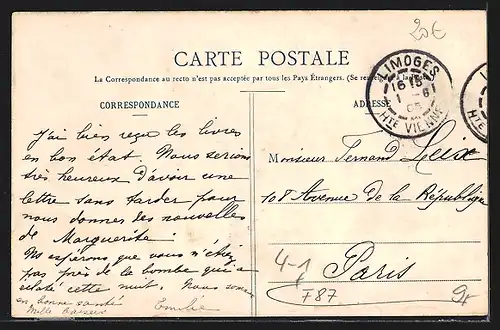 20€
CARTE POSTALE
La Correspondance au recto n'est pas acceptée par tous les Pays Étrangers. (Se
CORRESPONDANCE
ADRESSE
LIMOGES
16 15
1 - 6
05
HTE VIENNE
J'ai bien reçu les livres
en bon état. Nous serions
très heureux d'avoir une
lettre sans tarder pour
nous donner des nouvelles
de Marguerite!
Ns espérons que vous n'étiez
pas près de la bombe qui a
éclaté cette nuit. Nous sommes
en bonne santé
Mille baisers
Emilie
Monsieur Fernand
108 Avenue de la République
Paris
4-1
F87